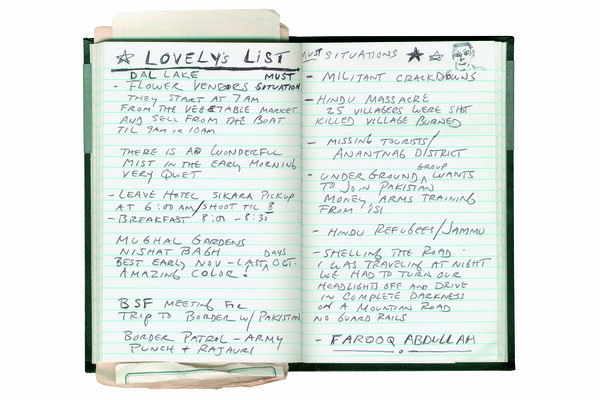 LOVELY'S LIST
DAL LAKE MUST
- FLOWER VENDORS SITUATION
THEY START AT 7AM
FROM THE VEGETABLE MARKET
AND SELL FROM THE BOAT
TIL 9AM OR 10AM
THERE IS A WONDERFUL
MIST IN THE EARLY MORNING
VERY QUIET
- LEAVE HOTEL SIKARA PICKUP
AT 6:00 AM/SHOOT TIL 8
- BREAKFAST 8:00 - 8:30
MUGHAL GARDENS
NISHAT BAGH DAYS
BEST EARLY NOV - LAST OCT.
AMAZING COLOR!
BSF MEETING FOR
TRIP TO BORDER W/ PAKISTAN
BORDER PATROL - ARMY
PUNCH + RAJAURI
MUST SITUATIONS
- MILITANT CRACKDOWNS
- HINDU MASSACRE
25 VILLAGERS WERE SHOT
KILLED VILLAGE BURNED
- MISSING TOURISTS/
ANANTNAG DISTRICT
GROUP
- UNDERGROUND WANTS
TO JOIN PAKISTAN
MONEY, ARMS TRAINING
FROM ISI
- HINDU REFUGEES/JAMMU
- SHELLING THE ROAD -
I WAS TRAVELING AT NIGHT
WE HAD TO TURN OUR
HEADLIGHTS OFF AND DRIVE
IN COMPLETE DARKNESS
ON A MOUNTIAN ROAD
NO GUARD RAILS
- FAROOQ ABDULLAH